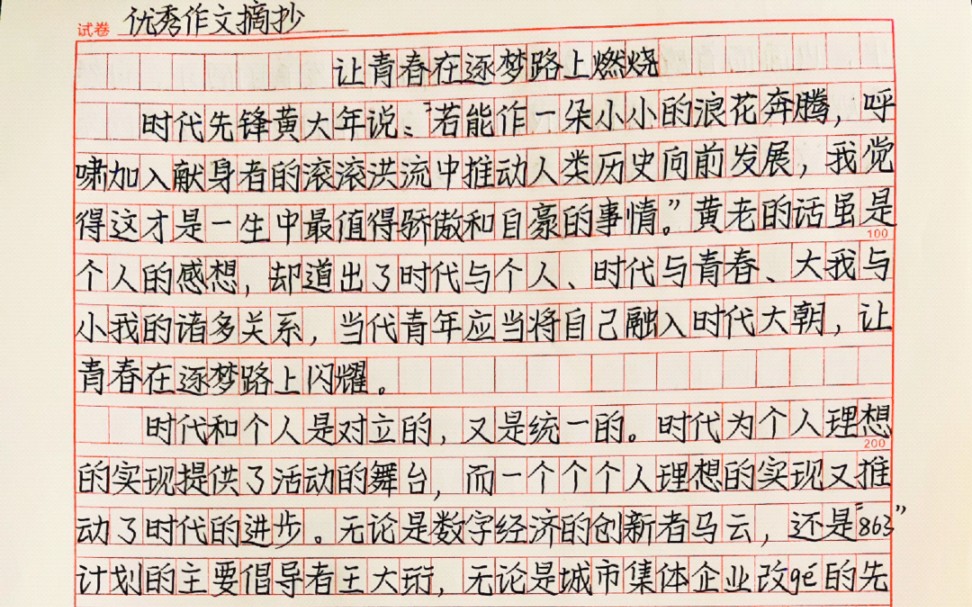 试卷 优秀作文摘抄
让青春在逐梦路上燃烧
时代先锋黄大年说:“若能作一朵小小的浪花奔腾，呼
啸加入献身者的滚滚洪流中推动人类历史向前发展，我觉
得这才是一生中最值得骄傲和自豪的事情。”黄老的话虽是
100
个人的感想，却道出了时代与个人、时代与青春、大我与
小我的诸多关系，当代青年应当将自己融入时代大朝，让
青春在逐梦路上闪耀。
时代和个人是对立的，又是统一的。时代为个人理想
200
的实现提供了活动的舞台，而一个个个人理想的实现又推
动了时代的进步。无论是数字经济的创新者马云，还是“863”
计划的主要倡导者王大珩，无论是城市集体企业改gé的先